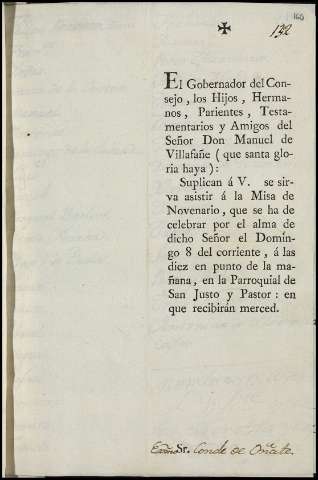 166
✠
132
El Gobernador del Con-
sejo, los Hijos, Herma-
nos, Parientes, Testa-
mentarios y Amigos del
Señor Don Manuel de
Villafañe (que santa glo-
ria haya):
Suplican á V. se sir-
va asistir á la Misa de
Novenario, que se ha de
celebrar por el alma de
dicho Señor el Domin-
go 8 del corriente, á las
diez en punto de la ma-
ñana, en la Parroquial de
San Justo y Pastor: en
que recibirán merced.
Exmo Sr. Conde de Oñate.